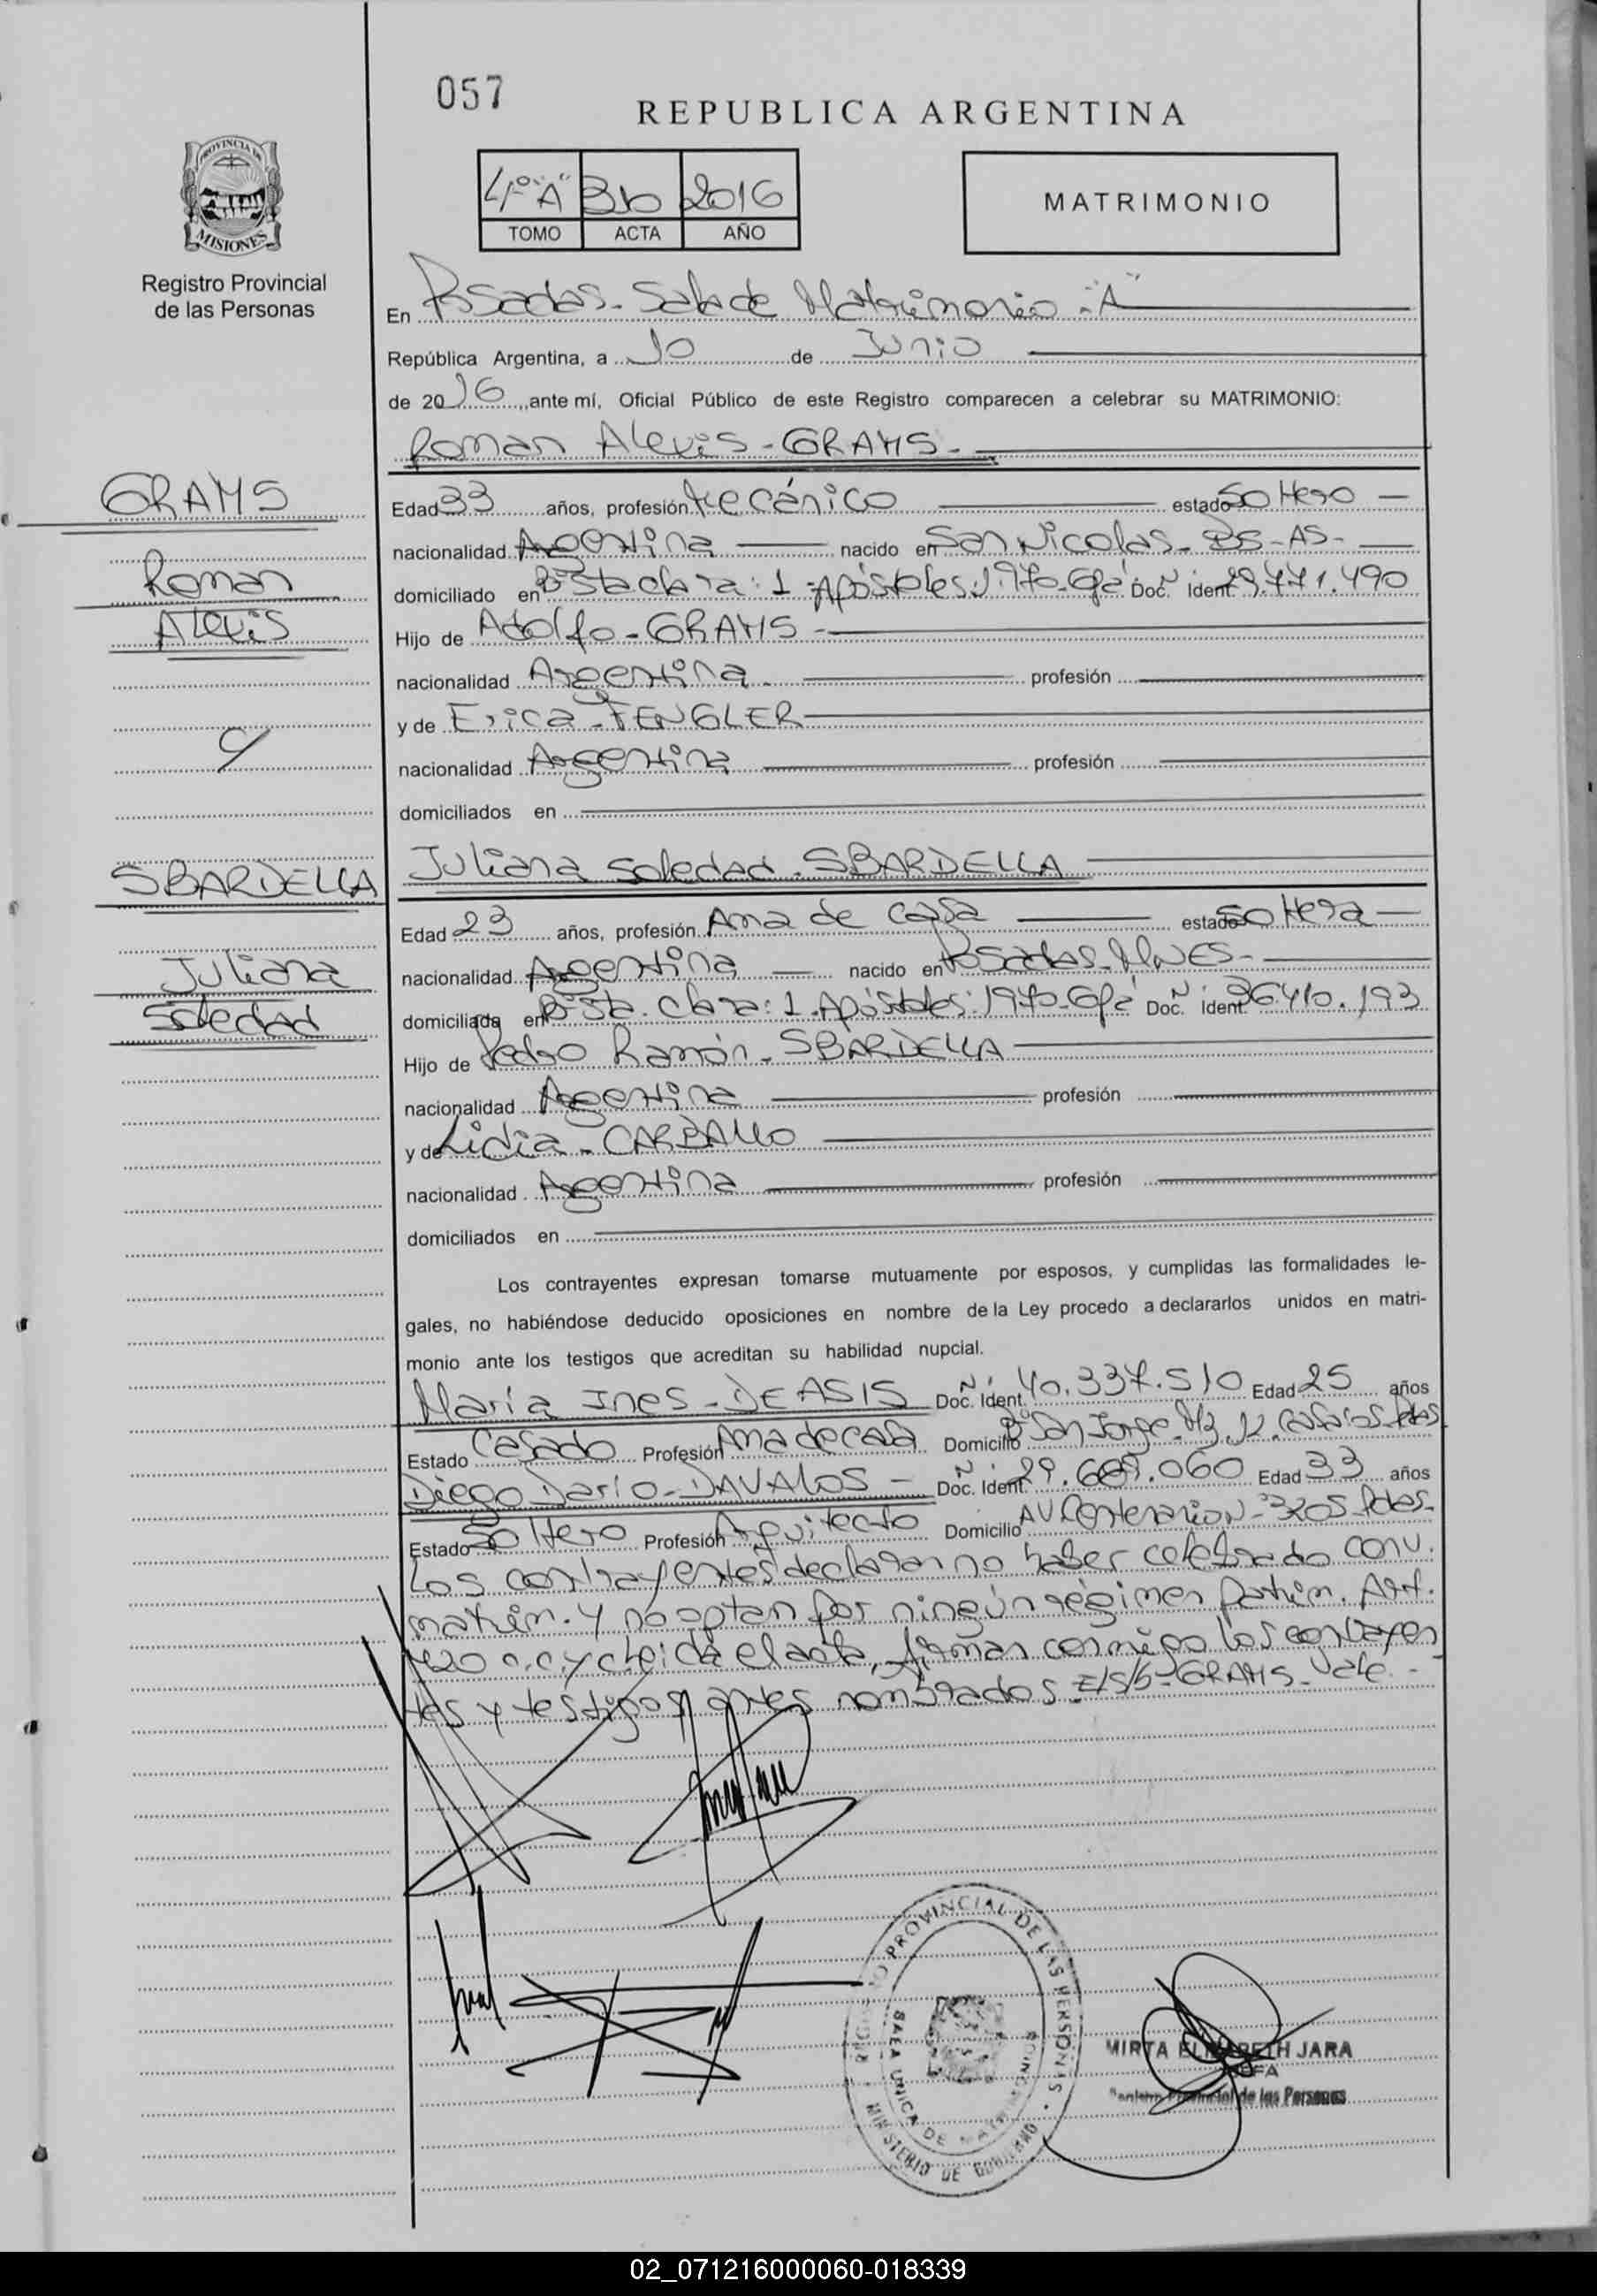 057
REPUBLICA ARGENTINA
4º "A" 316 2016
TOMO ACTA AÑO
MATRIMONIO
PROVINCIA DE
MISIONES
Registro Provincial
de las Personas
En Posadas - Sala de Matrimonio - "A"
República Argentina, a 10 de Junio
de 2016, ante mí, Oficial Público de este Registro comparecen a celebrar su MATRIMONIO:
Roman Alexis - GRAMS -
GRAMS
Roman
Alexis
Edad 33 años, profesión Mecánico estado Soltero
nacionalidad Argentina nacido en San Nicolas - Bs - As -
domiciliado en Bº Sta clara: 1 - Apóstoles: 1970 - Gpá Doc. Nº Ident. 29.471.490
Hijo de Adolfo - GRAMS -
nacionalidad Argentina profesión
y de Erica - FENGLER
nacionalidad Argentina profesión
domiciliados en
Juliana Soledad - SBARDELLA
SBARDELLA
Juliana
Soledad
Edad 23 años, profesión Ama de casa estado Soltera
nacionalidad Argentina nacido en Posadas - Mnes -
domiciliada en Bº Sta. Clara: 1 - Apóstoles: 1970 - Gpá Doc. Nº Ident. 36.410.193
Hijo de Pedro Ramón - SBARDELLA
nacionalidad Argentina profesión
y de Lidia - CARBALLO
nacionalidad Argentina profesión
domiciliados en
Los contrayentes expresan tomarse mutuamente por esposos, y cumplidas las formalidades le-
gales, no habiéndose deducido oposiciones en nombre de la Ley procedo a declararlos unidos en matri-
monio ante los testigos que acreditan su habilidad nupcial.
María Ines - DE ASIS Doc. Nº Ident. 40.337.510 Edad 25 años
Estado Casado Profesión Ama de casa Domicilio Bº San Jorge - Mz 12 - Casa 105 Pdas
Diego Dario - DAVALOS - Doc. Nº Ident. 29.689.060 Edad 33 años
Estado Soltero Profesión Arquitecto Domicilio AV Centenarion - 3205 Pdas -
Los contrayentes declaran no haber celebrado conv.
matrim. y no optan por ningún régimen patrim. Art.
420 c.c. y c leida el acta, firman conmigo los contrayen
tes y testigos antes nombrados - E/S/b - GRAMS - Vale -
REGISTRO PROVINCIAL DE LAS PERSONAS
SALA UNICA DE MATRIMONIOS
MINISTERIO DE GOBIERNO
MIRTA ELIZABETH JARA
JEFA
Registro Provincial de las Personas
02_071216000060-018339